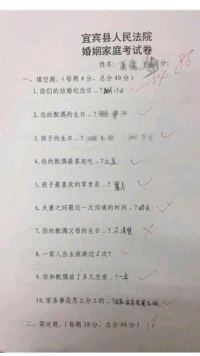 宜宾县人民法院
婚姻家庭考试卷
姓名： 分： 86
一、填空题。（每题 4 分，总分 40 分） 34
1.你们的结婚纪念日。？
2.你的配偶的生日。？
3.孩子的生日。？
4.你的配偶最喜欢吃。？
5.孩子最喜欢的零食是。？ 薯片
6.夫妻之间最近一次沟通的时间。？
7.你的配偶父母的生日。？ 不清楚
8.一家人出生旅游过 次？
9.你和配偶谈了多久恋爱。？ 一年
10.家务事是怎么分工的。？
二、简述题。（每题 10 分，总分 40 分）